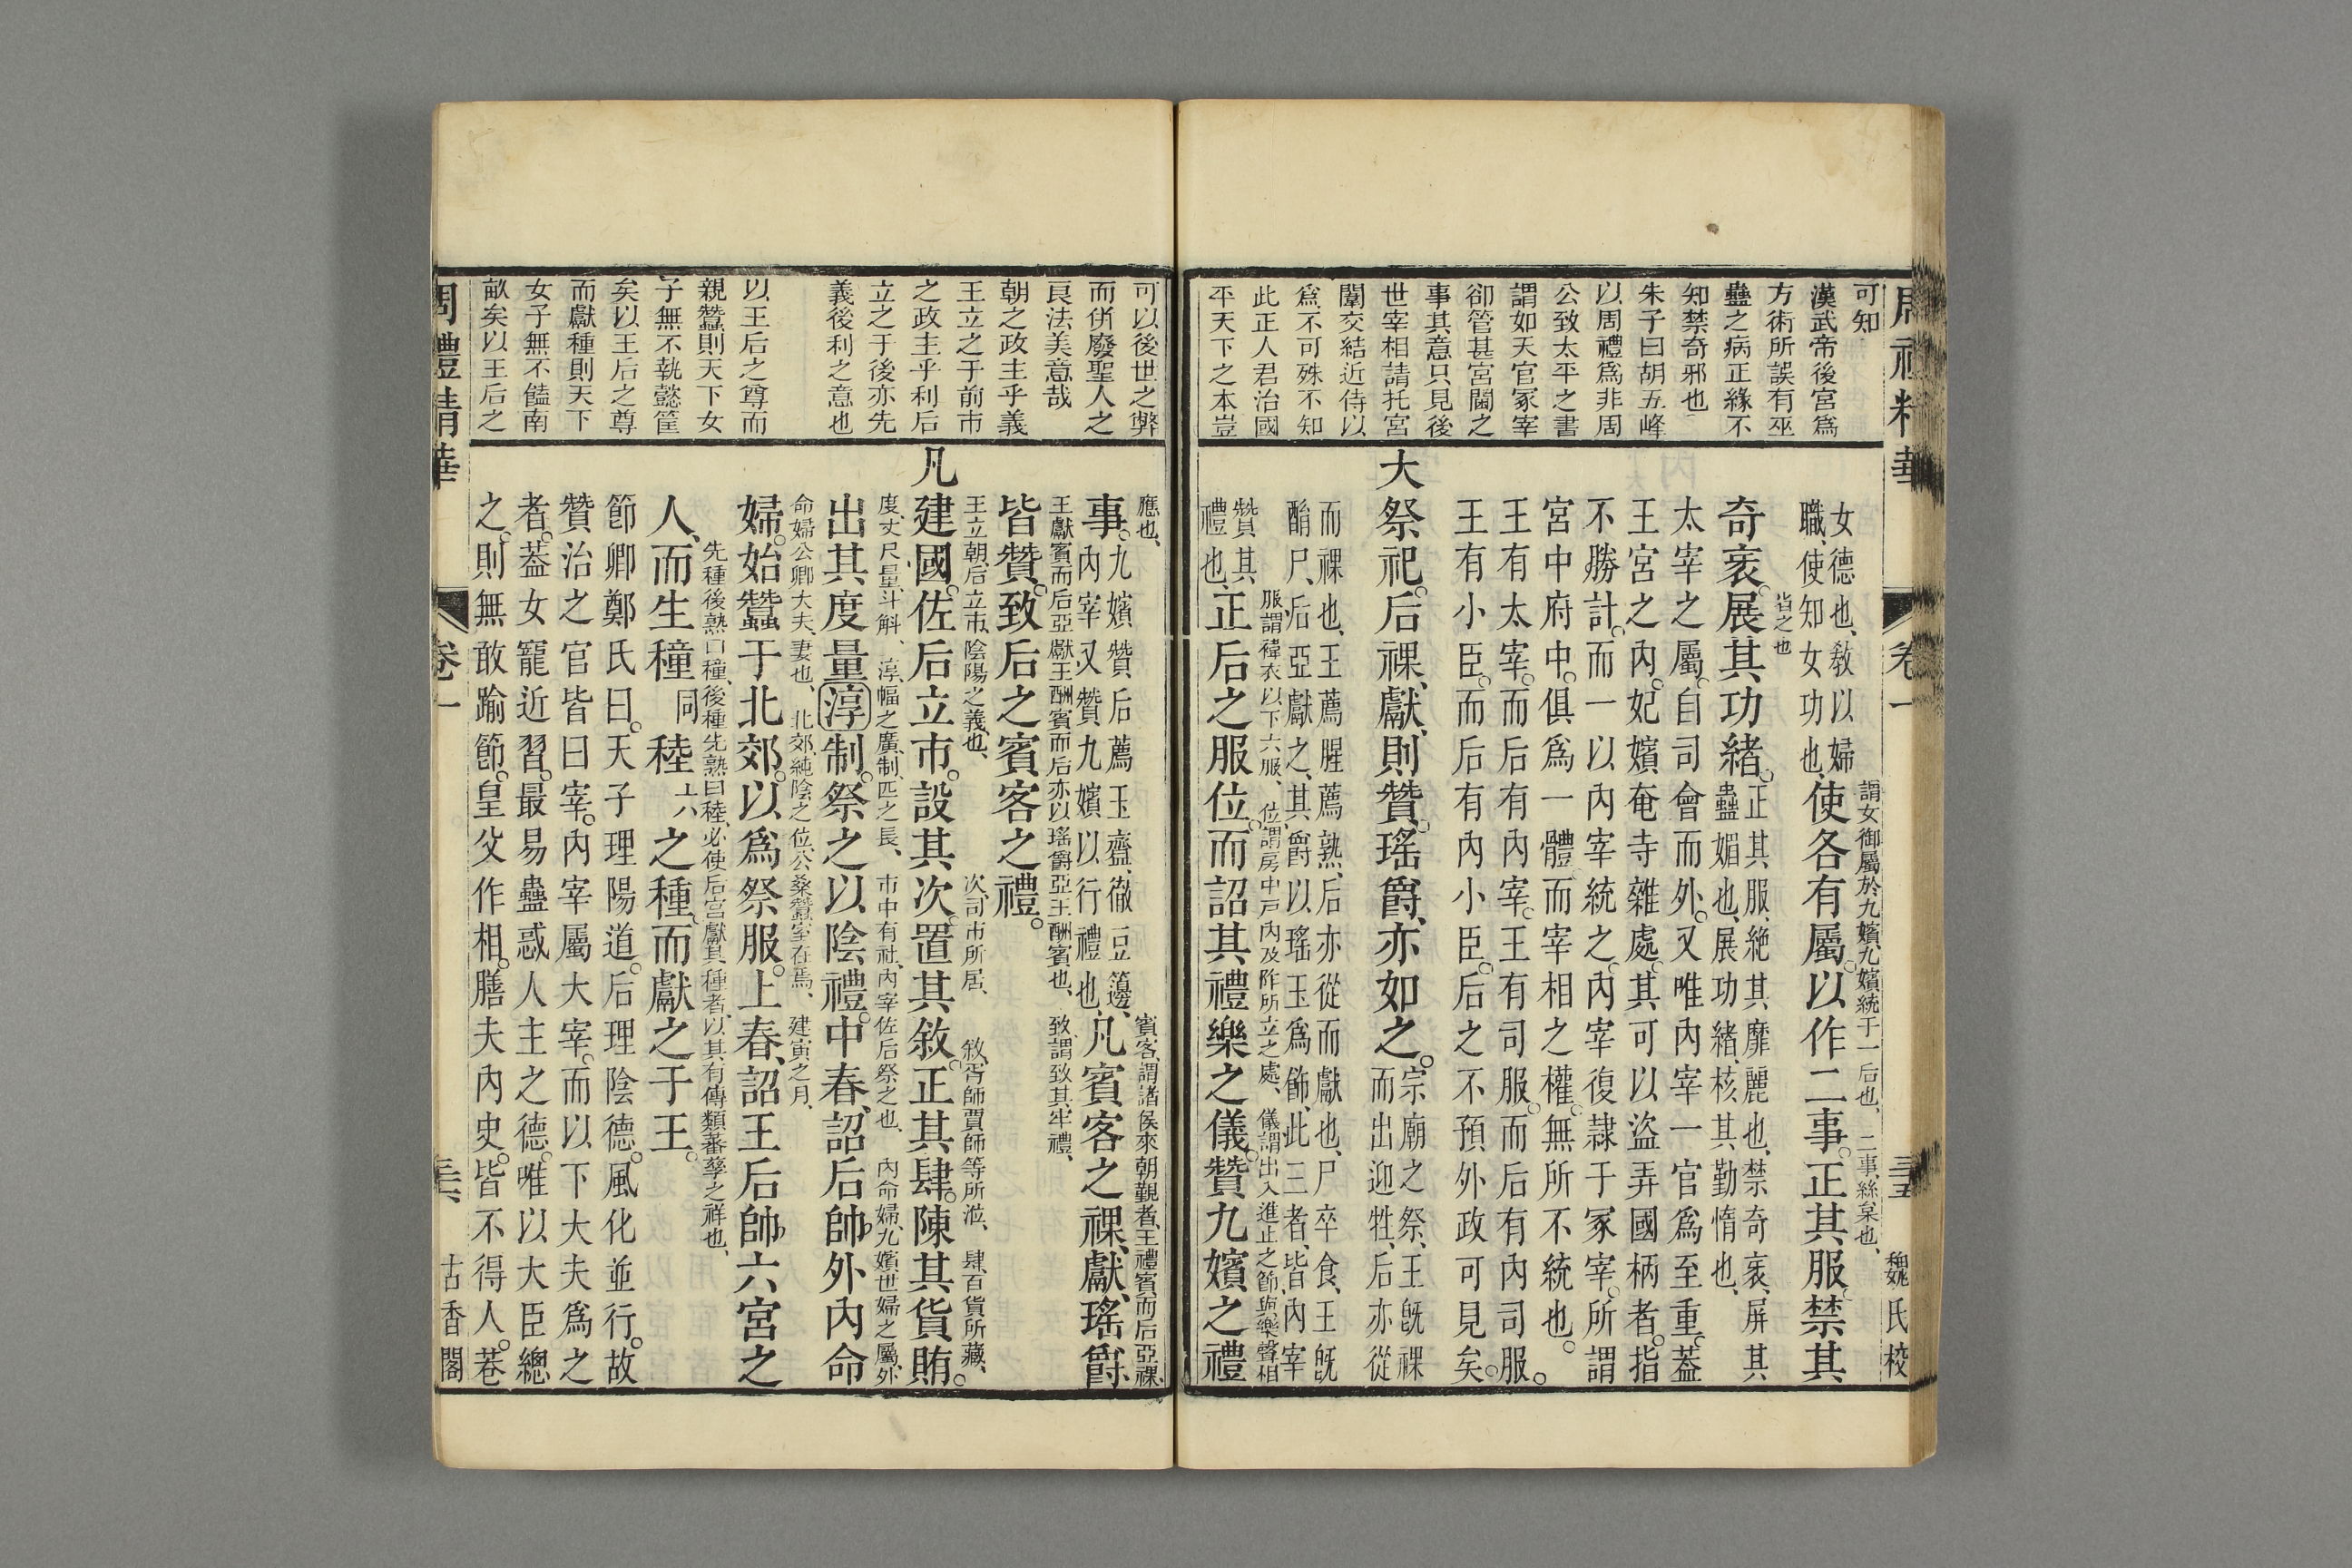 可知
漢武帝後宮爲
方術所誤有巫
蠱之病正緣不
知禁奇邪也
朱子曰胡五峰
以周禮爲非周
公致太平之書
謂如天官冢宰
卻管甚宮閫之
事其意只見後
世宰相請托宮
闈交結近侍以
爲不可殊不知
此正人君治國
平天下之本豈
謂女御屬於九嬪九嬪統于一后也、二事、絲枲也、
女德也、敎以婦
職、使知女功也、使各有屬。以作二事。正其服。禁其
皆之也
奇衺。展其功緖。正其服、絶其靡麗也、禁奇衺、屏其
蠱媚也、展功緖、核其勤惰也、
太宰之屬。自司會而外。又唯內宰一官爲至重。葢
王宮之內。妃嬪奄寺雜處。其可以盜弄國柄者。指
不勝計。而一以內宰統之。內宰復隷于冢宰。所謂
宮中府中。俱爲一體。而宰相之權。無所不統也。
王有太宰。而后有內宰。王有司服。而后有內司服。
王有小臣。而后有內小臣。后之不預外政可見矣。
大祭祀。后祼、獻、則贊。瑤爵、亦如之。宗廟之祭、王旣祼
而出迎牲、后亦從
而祼也、王薦腥薦熟、后亦從而獻也、尸卒食、王旣
酳尸、后亞獻之、其爵以瑤玉爲飾、此三者、皆內宰
服謂褘衣以下六服、位謂房中戸內及阼所立之處、儀謂出入進止之節與樂聲相
贊其
禮也、正后之服位。而詔其禮樂之儀。贊九嬪之禮
周禮精華
卷一
三五
魏氏校
可以後世之弊
而併廢聖人之
良法美意哉
朝之政主乎義
王立之于前市
之政主乎利后
立之于後亦先
義後利之意也
以王后之尊而
親蠶則天下女
子無不執懿筐
矣以王后之尊
而獻種則天下
女子無不饁南
畝矣以王后之
應也、
賓客、謂諸侯來朝覲者、王禮賓、而后亞祼、
事。九嬪贊后薦玉齍、徹豆籩、
內宰又贊九嬪以行禮也、凡賓客之祼、獻、瑤爵、
王獻賓而后亞獻王酬賓而后亦以瑤爵亞王酬賓也、致、謂致其牢禮、
皆贊。致后之賓客之禮。
王立朝、后立市、陰陽之義也、次、司市所居、敘、胥師賈師等所涖、肆、百貨所藏、
凡建國。佐后立市。設其次。置其敘。正其肆。陳其貨賄。
度、丈尺、量、斗斛、淳、幅之廣、制、匹之長、市中有社、內宰佐后祭之也、內命婦、九嬪世婦之屬、外
出其度量淳制。祭之以陰禮。中春、詔后帥外內命
命婦公卿大夫、妻也、北郊、純陰之位、公桑蠶室在焉、建寅之月、
婦。始蠶于北郊。以爲祭服。上春、詔王后帥六宮之
先種後熟曰穜、後種先熟曰稑、必使后宮獻其種者、以其有傳類蕃孳之祥也、
人。而生穜同稑六之種。而獻之于王。
節卿鄭氏曰。天子理陽道。后理陰德。風化並行。故
贊治之官皆曰宰。內宰屬大宰。而以下大夫爲之
者。葢女寵近習。最易蠱惑人主之德。唯以大臣總
之。則無敢踰節。皇父作相。膳夫內史。皆不得人。巷
周禮精華
卷一
三六
古香閣